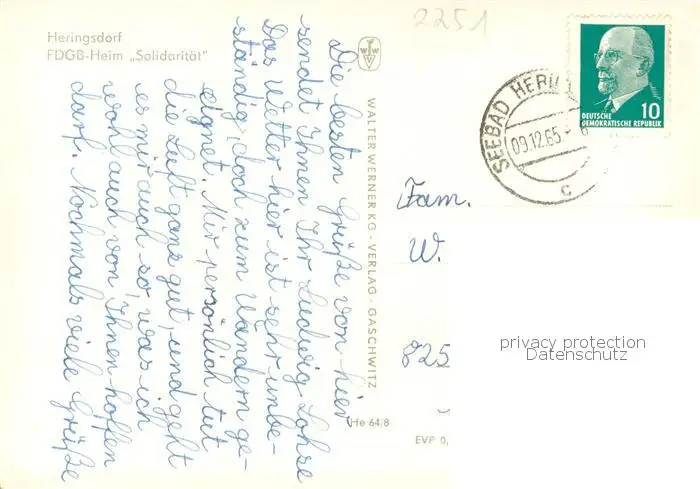 2251
Heringsdorf
FDGB-Heim „Solidarität"
WWV
WALTER WERNER KG · VERLAG · GASCHWITZ
He 64/8
EVP 0,
DEUTSCHE
DEMOKRATISCHE REPUBLIK
10
SEEBAD HERIN
09.12.65
c
Die besten Grüße von hier
sendet Ihnen Ihr Ludwig Lohse
Das Wetter hier ist sehr unbe-
ständig, doch zum Wandern ge-
eignet. Mir persönlich tut
die Luft ganz gut, und geht
es mir auch so, was ich
wohl auch von Ihnen hoffen
darf. Nochmals viele Grüße
Fam.
W.
825
privacy protection
Datenschutz